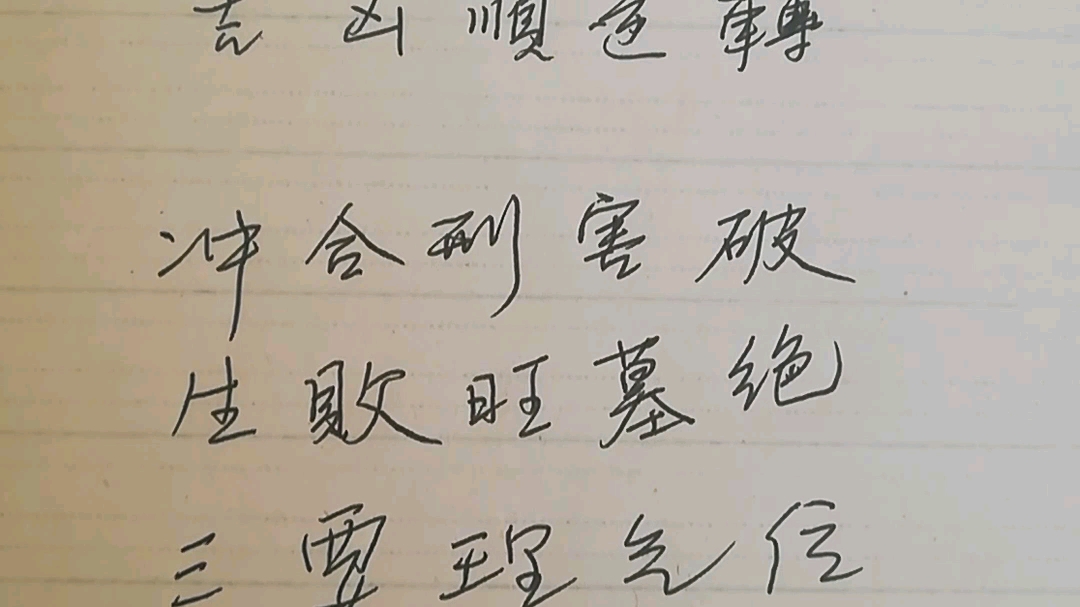 吉凶順逆轉
冲合刑害破
生败旺墓绝
三要理气位